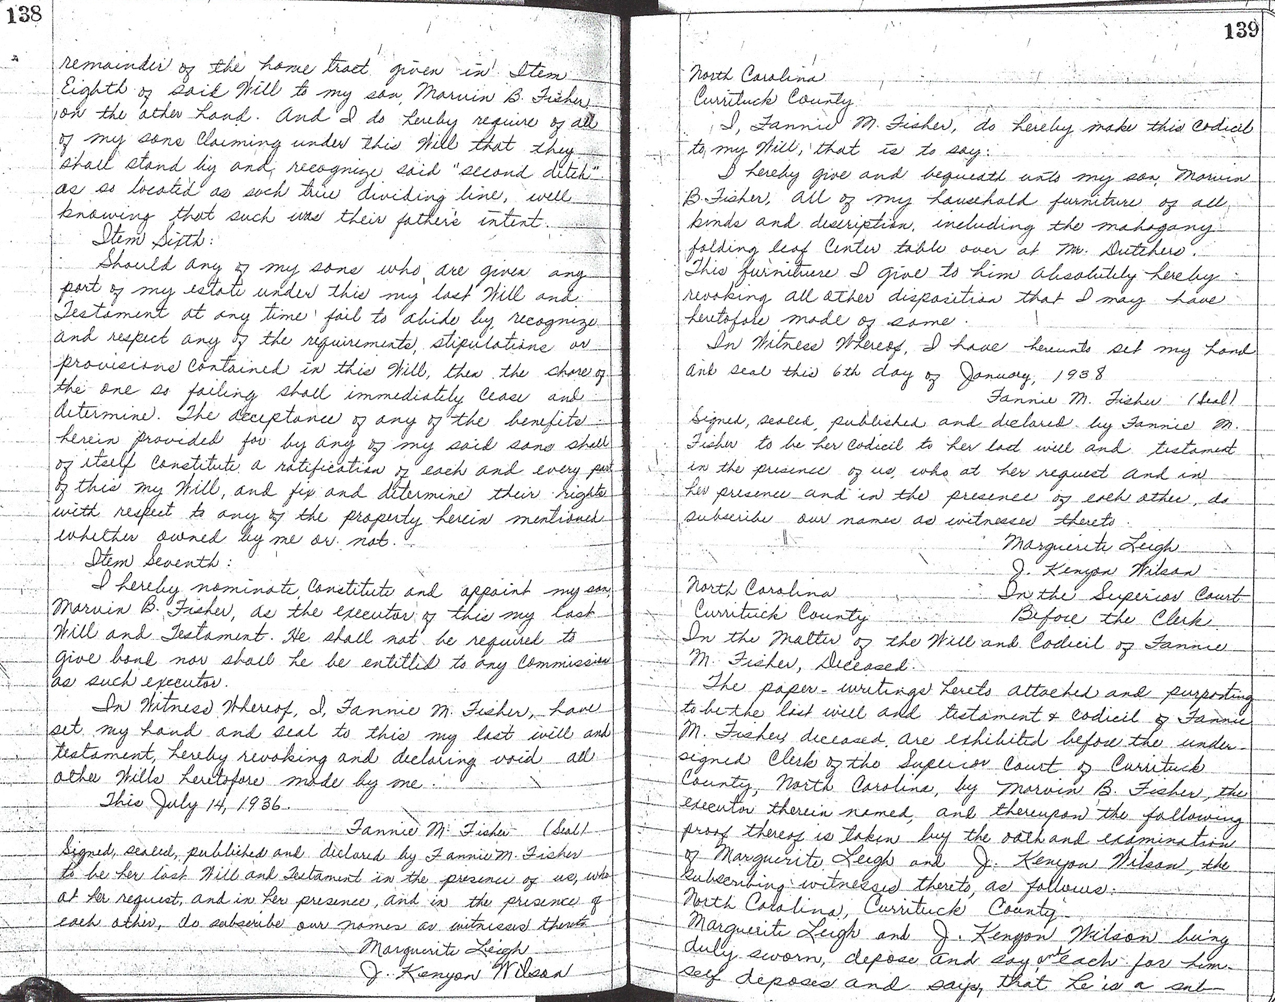 138
remainder of the home tract given in Item
Eighth of said Will to my son, Marvin B. Fisher,
on the other hand. And I do hereby require of all
of my sons claiming under this Will that they
shall stand by and, recognize said "second ditch"
as so located as such true dividing line, well
knowing that such was their father's intent.
Item Sixth:
Should any of my sons who are given any
part of my estate under this my last Will and
Testament at any time fail to abide by, recognize
and respect any of the requirements, stipulations or
provisions contained in this Will, then the share of
the one so failing shall immediately cease and
determine. The acceptance of any of the benefits
herein provided for by any of my said sons shall
of itself constitute a ratification of each and every part
of this my Will, and fix and determine their rights
with respect to any of the property herein mentioned
whether owned by me or not.
Item Seventh:
I hereby nominate, constitute and appoint my son,
Marvin B. Fisher, as the executor of this my last
Will and Testament. He shall not be required to
give bond nor shall he be entitled to any commission
as such executor.
In Witness Whereof, I, Fannie M. Fisher, have
set my hand and seal to this my last will and
testament, hereby revoking and declaring void all
other Wills heretofore made by me.
This July 14, 1936.
Fannie M. Fisher (Seal)
Signed, sealed, published and declared by Fannie M. Fisher
to be her last Will and Testament in the presence of us, who
at her request, and in her presence, and in the presence of
each other, do subscribe our names as witnesses thereto
Marguerite Leigh
J. Kenyon Wilson
139
North Carolina
Currituck County
I, Fannie M. Fisher, do hereby make this codicil
to my Will, that is to say:
I hereby give and bequeath unto my son, Marvin
B. Fisher, all of my household furniture of all
kinds and description, including the mahogany
folding leaf center table over at Mr. Dutchers.
This furniture I give to him absolutely hereby
revoking all other disposition that I may have
heretofore made of same.
In Witness Whereof, I have hereunto set my hand
and seal this 6th day of January, 1938
Fannie M. Fisher (Seal)
Signed, sealed, published and declared by Fannie M.
Fisher to be her codicil to her last will and testament
in the presence of us, who at her request and in
her presence and in the presence of each other, do
subscribe our names as witnesses thereto.
Marguerite Leigh
J. Kenyon Wilson
North Carolina In the Superior Court
Currituck County Before the Clerk
In the Matter of the Will and Codicil of Fannie
M. Fisher, Deceased.
The paper-writings hereto attached and purporting
to be the last will and testament & codicil of Fannie
M. Fisher, deceased, are exhibited before the under-
signed Clerk of the Superior Court of Currituck
County, North Carolina, by Marvin B. Fisher, the
executor therein named, and thereupon the following
proof thereof is taken by the oath and examination
of Marguerite Leigh and J. Kenyon Wilson, the
subscribing witnesses thereto, as follows:
North Carolina, Currituck County.
Marguerite Leigh and J. Kenyon Wilson being
duly sworn, depose and say, and each for him-
self deposes and says, that he is a sub-